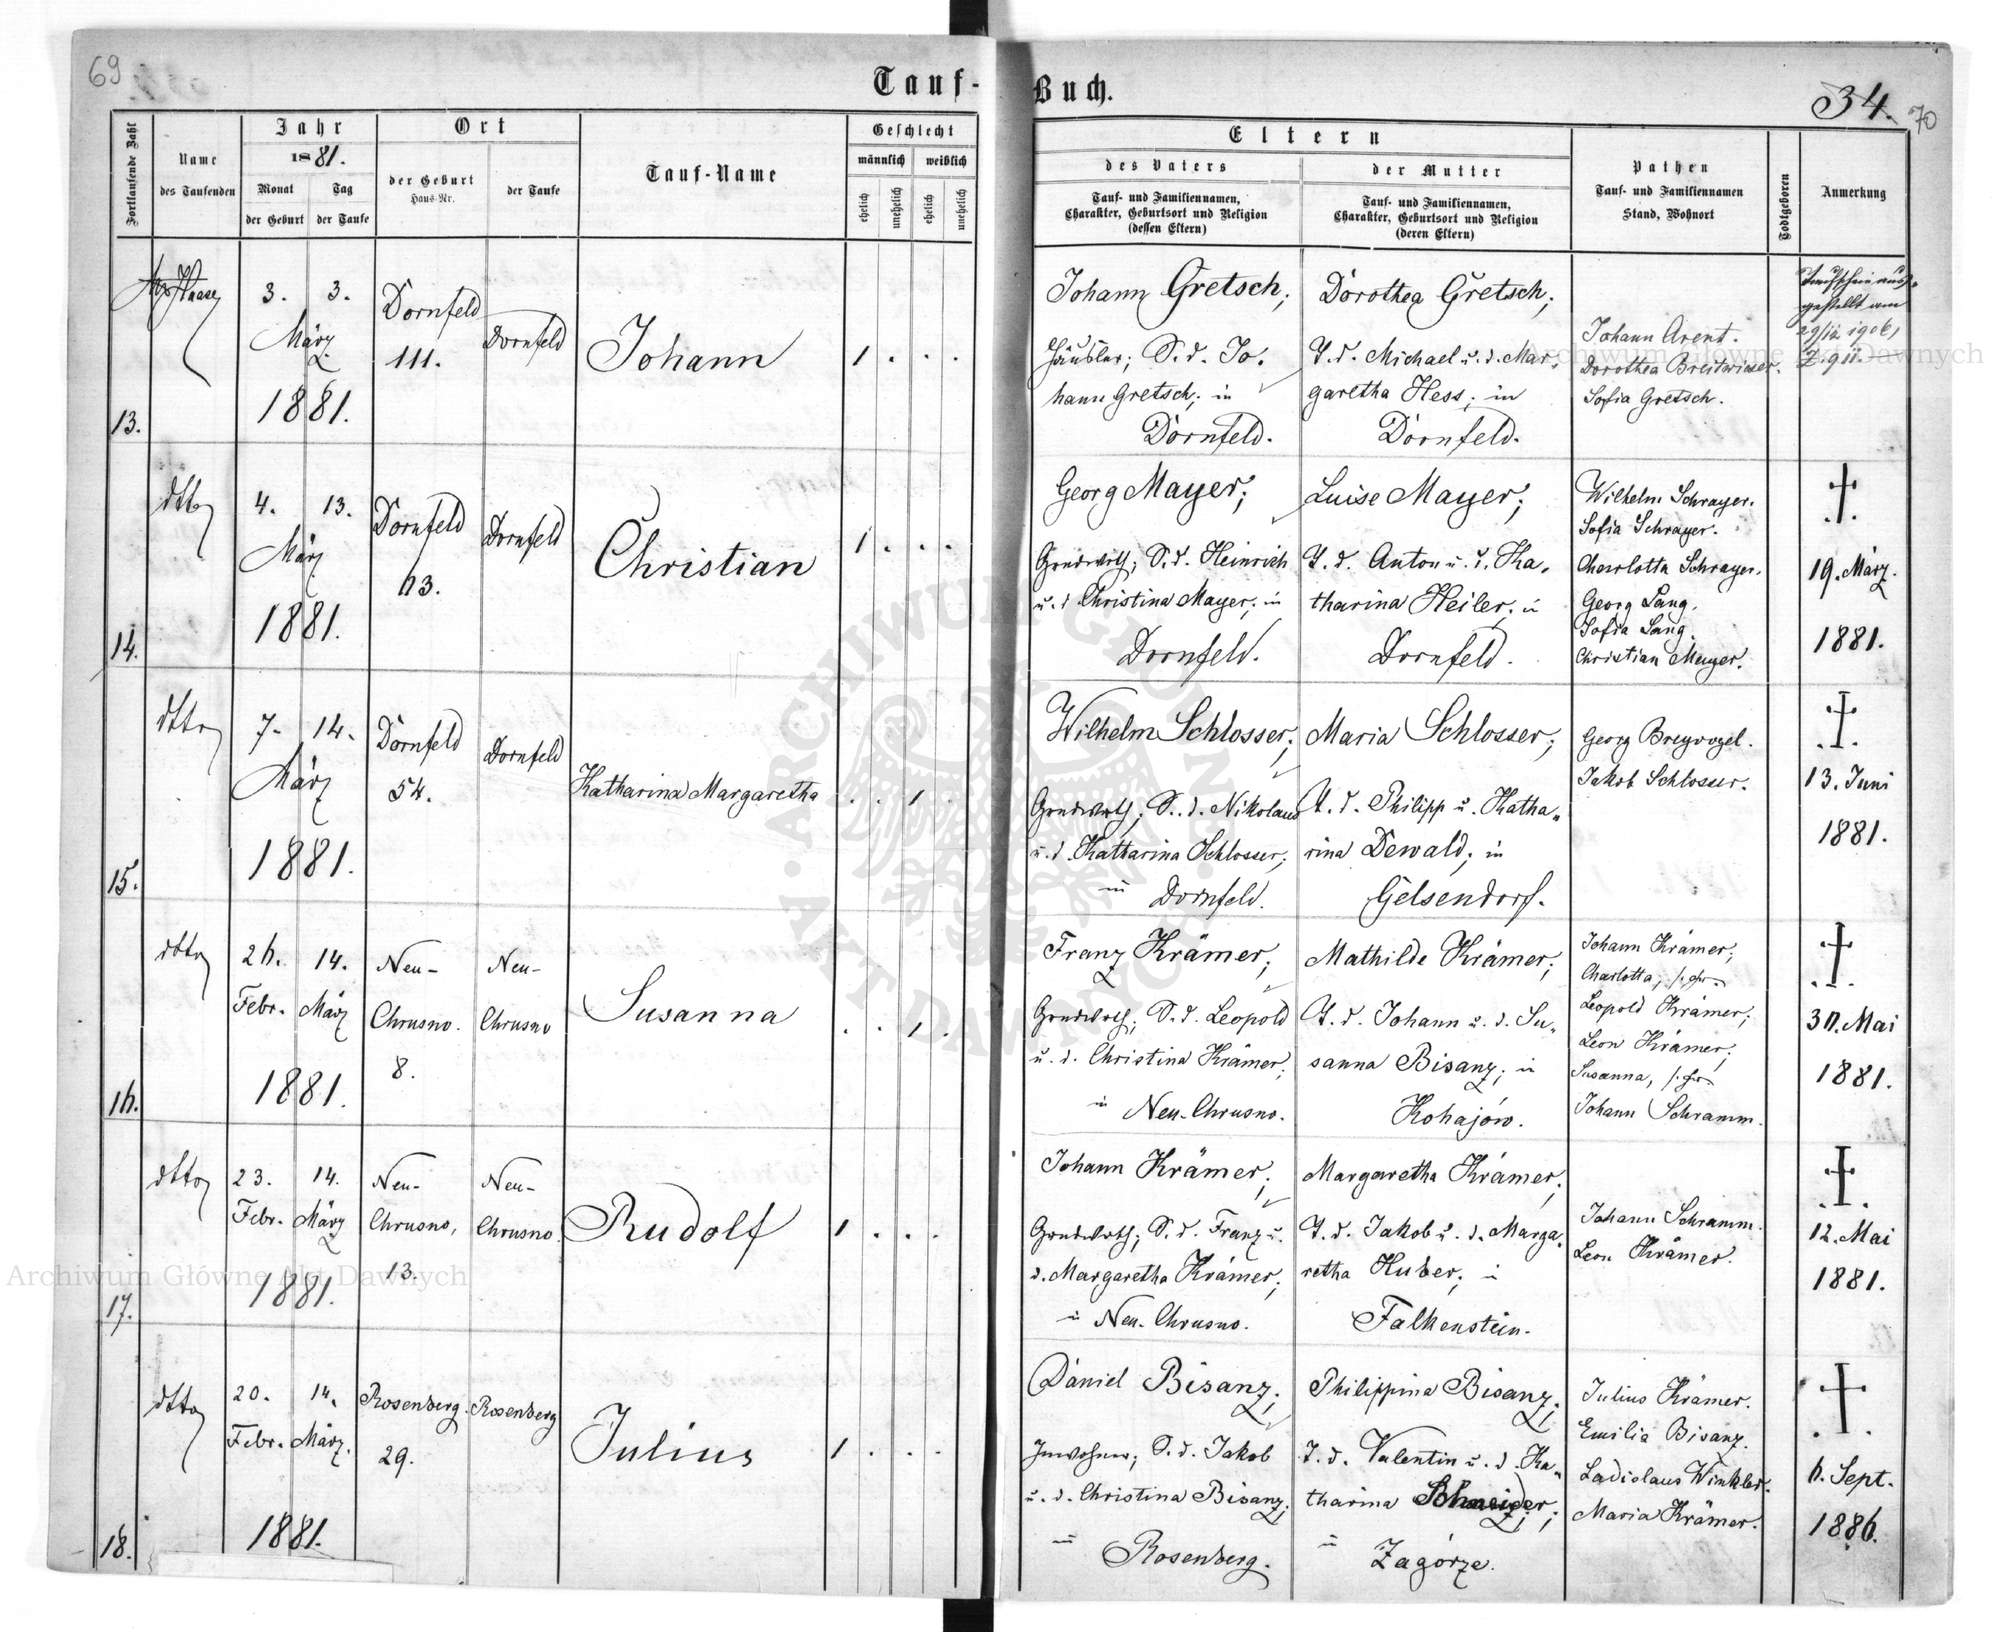 69
Tauf-Buch.
34.
70
Fortlaufende Zahl
Name
des Taufenden
Jahr
1881.
Monat
der Geburt
Tag
der Taufe
Ort
der Geburt
Haus-Nr.
der Taufe
Tauf-Name
Geschlecht
männlich
weiblich
ehelich
unehelich
ehelich
unehelich
Eltern
des Vaters
Tauf- und Familiennamen,
Charakter, Geburtsort und Religion
(dessen Eltern)
der Mutter
Tauf- und Familiennamen,
Charakter, Geburtsort und Religion
(deren Eltern)
Pathen
Tauf- und Familiennamen
Stand, Wohnort
Todtgeboren
Anmerkung
13.
3. 3.
März
1881.
Dornfeld
111.
Dornfeld
Johann
1 . . .
Johann Gretsch;
Häusler; S. d. Jo-
hann Gretsch; in
Dornfeld.
Dorothea Gretsch;
T. d. Michael u. d. Mar-
garetha Hess; in
Dornfeld.
Johann Arent.
Dorothea Breitwieser.
Sofia Gretsch.
Taufschein aus-
gestellt am
29/12 1906,
14.
dtto
4. 13.
März
1881.
Dornfeld
63.
Dornfeld
Christian
1 . . .
Georg Mayer;
Grndwrth; S. d. Heinrich
u. d. Christina Mayer; in
Dornfeld.
Luise Mayer;
T. d. Anton u. d. Ka-
tharina Heiler; in
Dornfeld.
Wilhelm Schrayer.
Sofia Schrayer.
Charlotta Schrayer.
Georg Lang.
Sofia Lang.
Christian Mayer.
19. März
1881.
15.
dtto
7. 14.
März
1881.
Dornfeld
54.
Dornfeld
Katharina Margaretha
. . 1 .
Wilhelm Schlosser;
Grndwrth; S. d. Nikolaus
u. d. Katharina Schlosser;
in Dornfeld.
Maria Schlosser;
T. d. Philipp u. Katha-
rina Dewald; in
Gelsendorf.
Georg Breyvogel.
Jakob Schlosser.
13. Juni
1881.
16.
dtto
26. 14.
Febr. März
1881.
Neu-
Chrusno.
8.
Neu-
Chrusno
Susanna
. . 1 .
Franz Krämer;
Grndwrth; S. d. Leopold
u. d. Christina Krämer;
in Neu-Chrusno.
Mathilde Krämer;
T. d. Johann u. d. Su-
sanna Bisanz; in
Kohajów.
Johann Krämer;
Charlotta,
Leopold Krämer;
Leon Krämer;
Susanna,
Johann Schramm.
30. Mai
1881.
17.
dtto
23. 14.
Febr. März
1881.
Neu-
Chrusno,
13.
Neu-
Chrusno.
Rudolf
1 . . .
Johann Krämer;
Grndwrth; S. d. Franz u.
d. Margaretha Krämer;
in Neu-Chrusno.
Margaretha Krämer;
T. d. Jakob u. d. Marga-
retha Huber; in
Falkenstein.
Johann Schramm.
Leon Krämer.
12. Mai
1881.
18.
dtto
20. 14.
Febr. März.
1881.
Rosenberg.
29.
Rosenberg
Julius
1 . . .
Daniel Bisanz;
Inwohner; S. d. Jakob
u. d. Christina Bisanz;
in Rosenberg.
Philippina Bisanz;
T. d. Valentin u. d. Ka-
tharina Schneider;
in Zagórze.
Julius Krämer.
Emilia Bisanz.
Ladislaus Winkler.
Maria Krämer.
6. Sept.
1886.
Archiwum Główne Akt Dawnych
Archiwum Główne Akt Dawnych
ARCHIWUM GŁÓWNE
AKT DAWNYCH